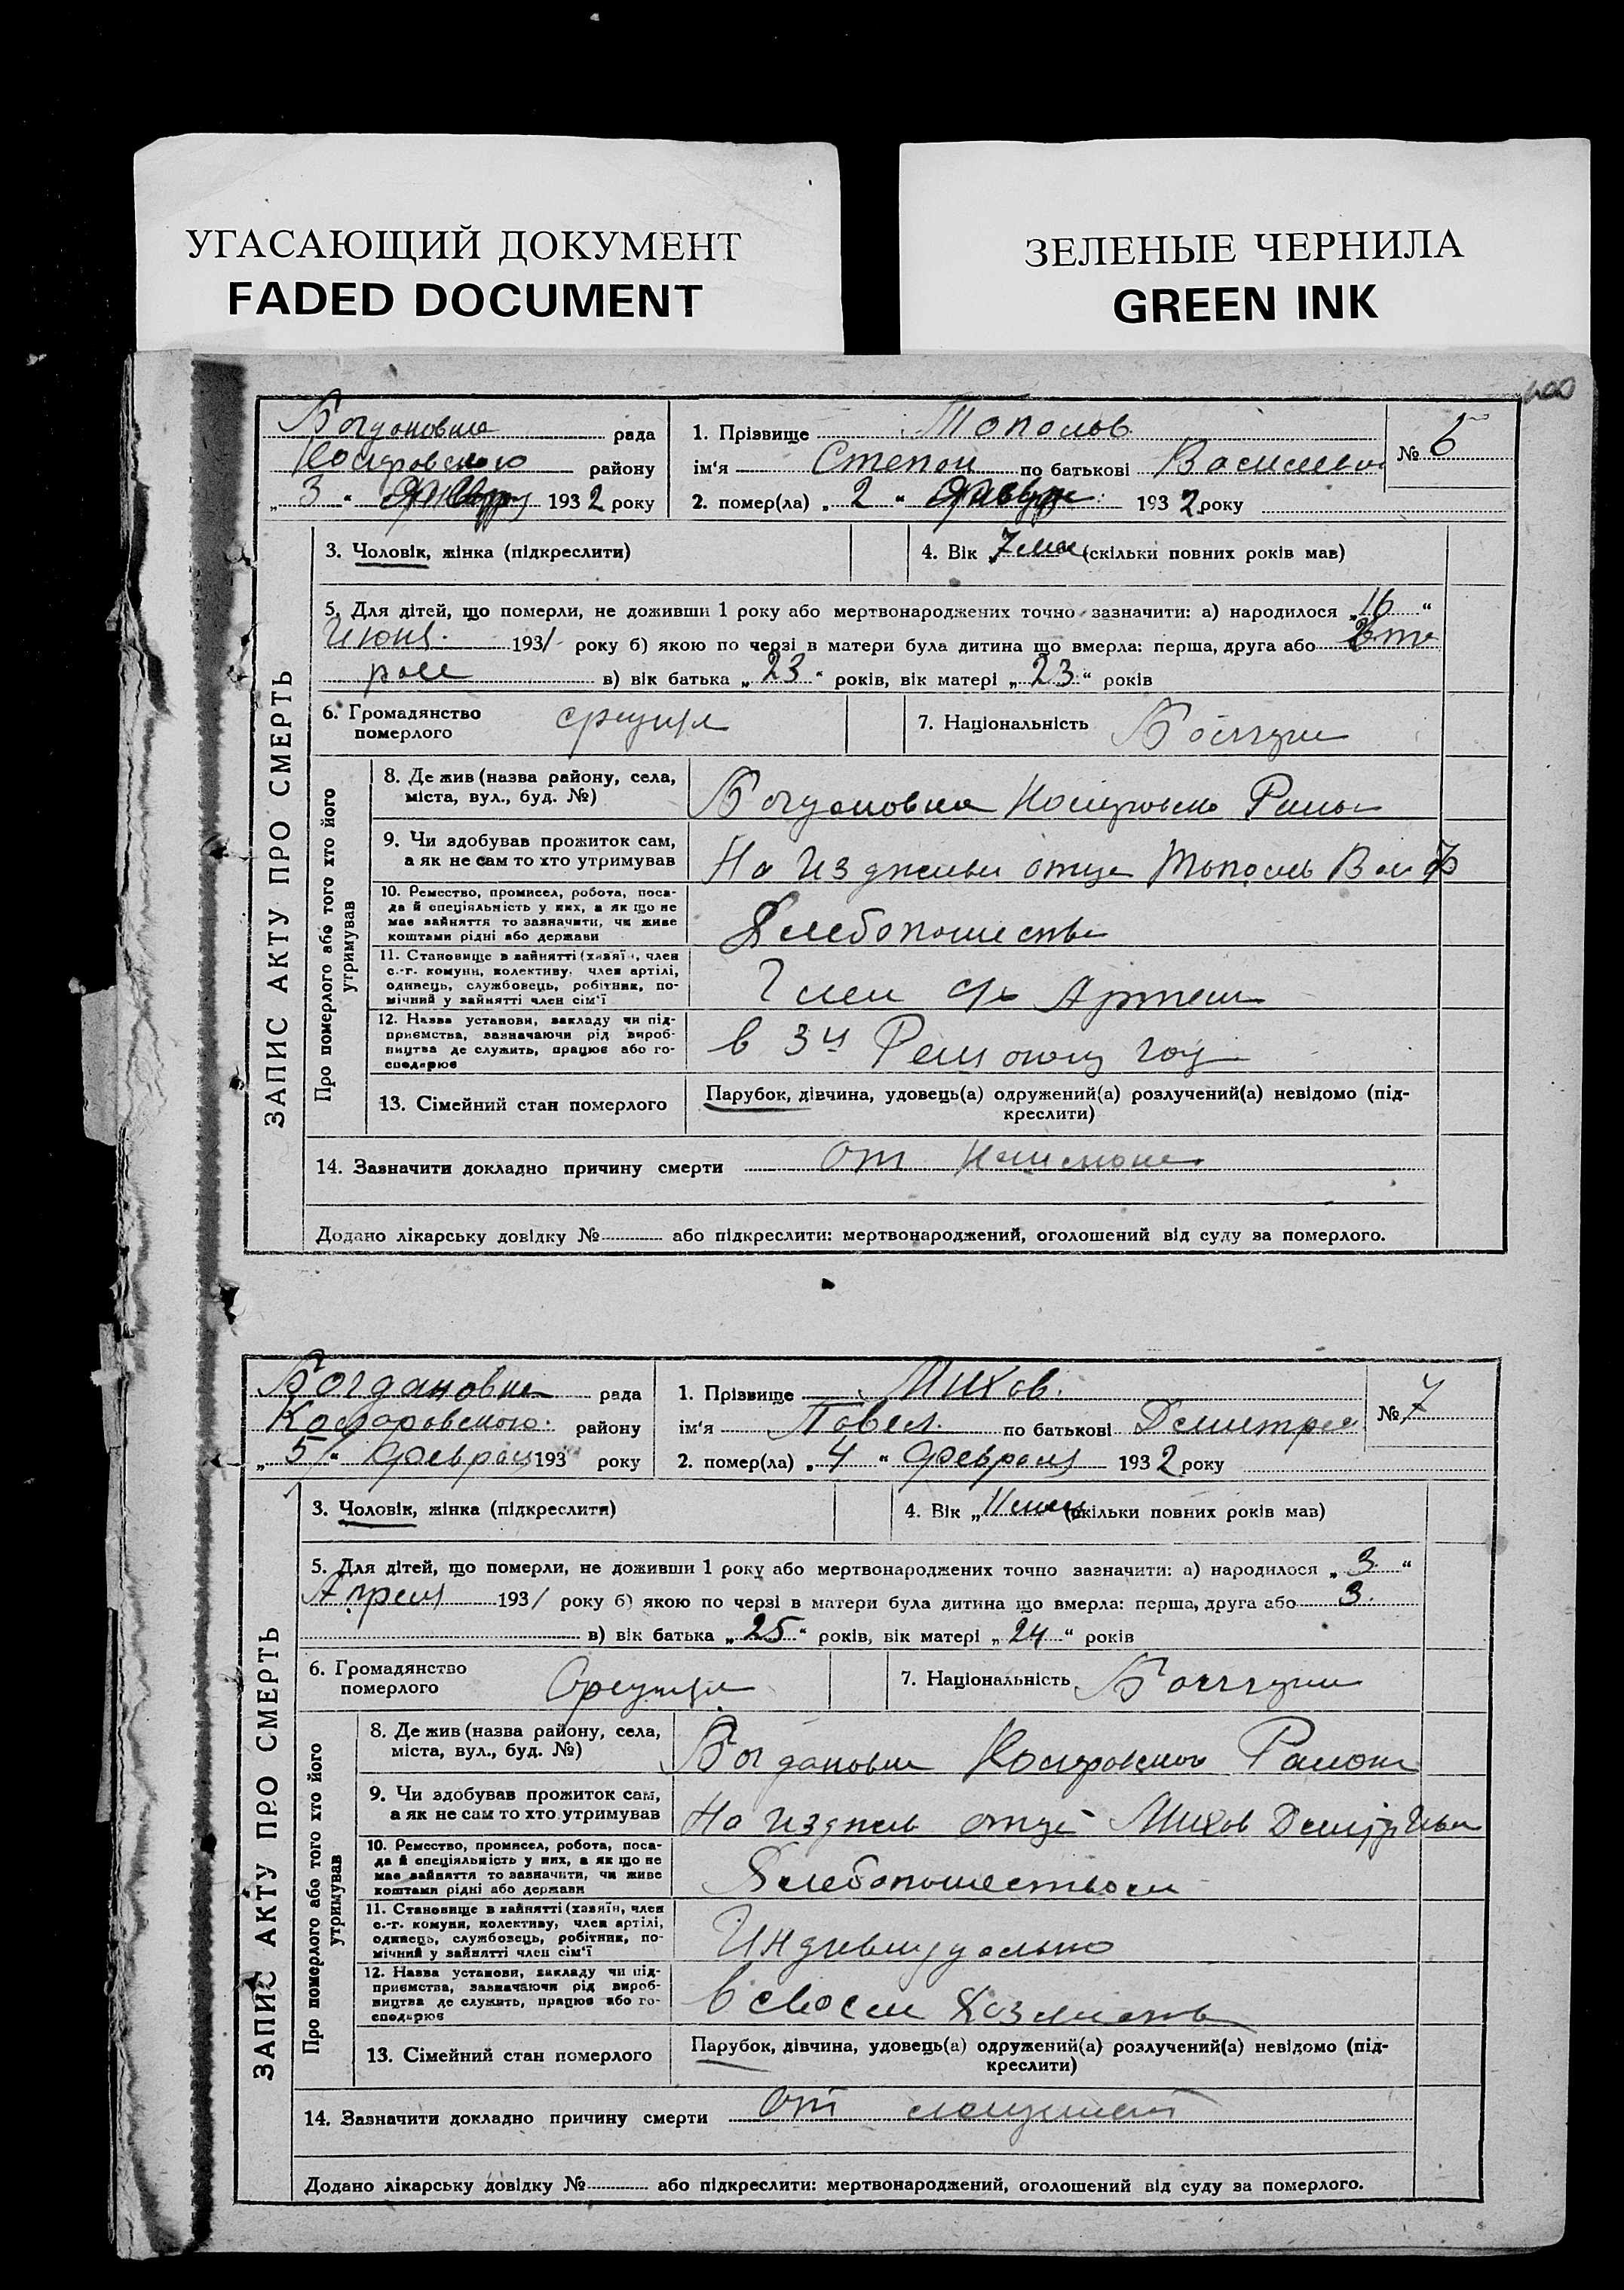 УГАСАЮЩИЙ ДОКУМЕНТ
FADED DOCUMENT
ЗЕЛЕНЫЕ ЧЕРНИЛА
GREEN INK
400
Богдановка рада
району
„ 3 “ 193 2 року
1. Прізвище Тополов
ім'я Степан по батькові
2. помер(ла) „ 2 “ 193 2 року
№ 6
ЗАПИС АКТУ ПРО СМЕРТЬ
3. Чоловік, жінка (підкреслити)
4. Вік 7 мес (скільки повних років мав)
5. Для дітей, що померли, не доживши 1 року або мертвонароджених точно зазначити: а) народилося „ 16 “
Июня 1931 року б) якою по черзі в матери була дитина що вмерла: перша, друга або
в) вік батька „ 23 “ років, вік матері „ 23 “ років
6. Громадянство
померлого
7. Національність
Про померлого або того хто його
утримував
8. Де жив (назва району, села,
міста, вул., буд. №)
Богдановка
9. Чи здобував прожиток сам,
а як не сам то хто утримував
На отца
10. Ремество, промисел, робота, поса-
да й спеціяльність у них, а як що не
має зайняття то зазначити, чи живе
коштами рідні або держави
11. Становище в зайнятті (хазяїн, член
с.-г. комуни, колективу, член артілі,
одинець, службовець, робітник, по-
мічний у зайнятті член сім'ї
Член Артели
12. Назва установи, закладу чи під-
приємства, зазначаючи рід вироб-
ництва де служить, працює або го-
сподарює
в 3
13. Сімейний стан померлого
Парубок, дівчина, удовець(а) одружений(а) розлучений(а) невідомо (під-
креслити)
14. Зазначити докладно причину смерти от
Додано лікарську довідку № або підкреслити: мертвонароджений, оголошений від суду за померлого.
Богдановка рада
району
„ 5 “ Февраля 193 року
1. Прізвище Михов
ім'я Павел по батькові
2. помер(ла) „ 4 “ Февраля 193 2 року
№ 7
ЗАПИС АКТУ ПРО СМЕРТЬ
3. Чоловік, жінка (підкреслити)
4. Вік „ (скільки повних років мав)
5. Для дітей, що померли, не доживши 1 року або мертвонароджених точно зазначити: а) народилося „ 3 “
Апреля 1931 року б) якою по черзі в матери була дитина що вмерла: перша, друга або 3.
в) вік батька „ 25 “ років, вік матері „ 24 “ років
6. Громадянство
померлого
7. Національність
Про померлого або того хто його
утримував
8. Де жив (назва району, села,
міста, вул., буд. №)
Богдановка Района
9. Чи здобував прожиток сам,
а як не сам то хто утримував
На Михов
10. Ремество, промисел, робота, поса-
да й спеціяльність у них, а як що не
має зайняття то зазначити, чи живе
коштами рідні або держави
11. Становище в зайнятті (хазяїн, член
с.-г. комуни, колективу, член артілі,
одинець, службовець, робітник, по-
мічний у зайнятті член сім'ї
12. Назва установи, закладу чи під-
приємства, зазначаючи рід вироб-
ництва де служить, працює або го-
сподарює
в своем
13. Сімейний стан померлого
Парубок, дівчина, удовець(а) одружений(а) розлучений(а) невідомо (під-
креслити)
14. Зазначити докладно причину смерти От
Додано лікарську довідку № або підкреслити: мертвонароджений, оголошений від суду за померлого.